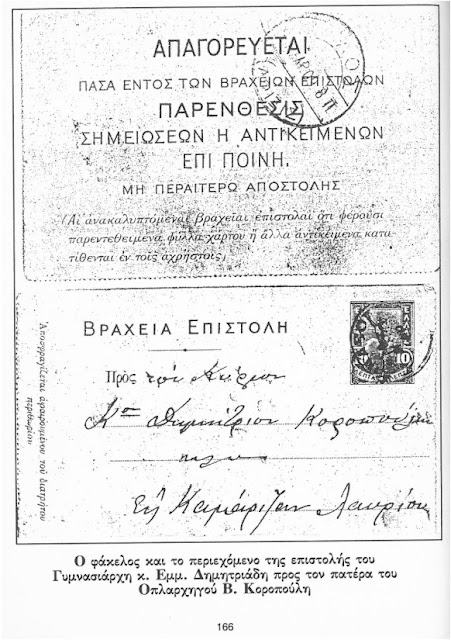 ΑΠΑΓΟΡΕΥΕΤΑΙ
ΠΑΣΑ ΕΝΤΟΣ ΤΩΝ ΒΡΑΧΕΙΩΝ ΕΠΙΣΤΟΛΩΝ
ΠΑΡΕΝΘΕΣΙΣ
ΣΗΜΕΙΩΣΕΩΝ Η ΑΝΤΙΚΕΙΜΕΝΩΝ
ΕΠΙ ΠΟΙΝΗ.
ΜΗ ΠΕΡΑΙΤΕΡΩ ΑΠΟΣΤΟΛΗΣ
(Αἱ ἀνακαλυπτόμεναι βραχεῖαι ἐπιστολαὶ ὅτι φέρουσι
παρεντεθειμένα φύλλα χάρτου ἢ ἄλλα ἀντικείμενα κατα
τίθενται ἐν τοῖς ἀχρήστοις)
ΒΡΑΧΕΙΑ ΕΠΙΣΤΟΛΗ
Ἀποσφραγίζεται ἀφαιρουμένου τοῦ διατρήτου
περιθωρίου
10
Πρὸς τὸν Κύριον
Κον Δημήτριον Κοροπούλην
Εἰς Καμάριζαν Λαυρίου
Ο φάκελος και το περιεχόμενο της επιστολής του
Γυμνασιάρχη κ. Εμμ. Δημητριάδη προς τον πατέρα του
Οπλαρχηγού Β. Κοροπούλη
166